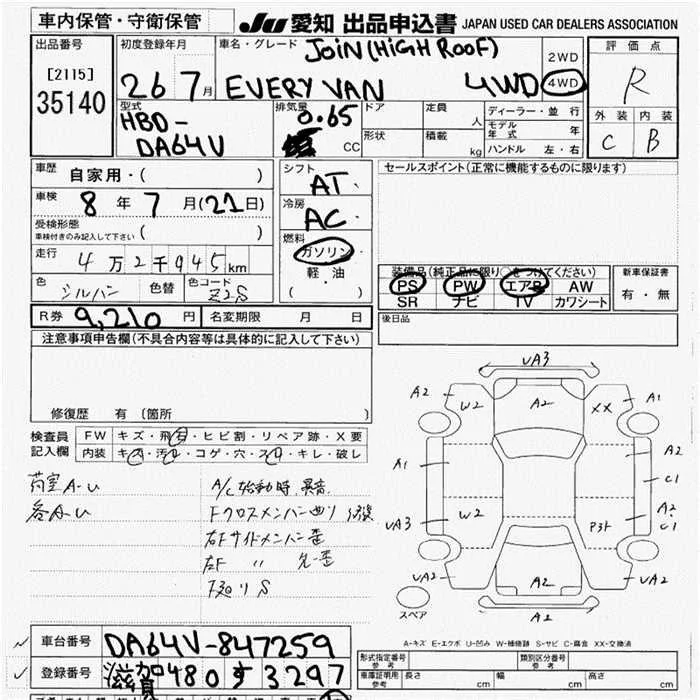 車内保管・守衛保管
JU 愛知 出品申込書 JAPAN USED CAR DEALERS ASSOCIATION
出品番号
[2115]
35140
初度登録年月
26 7月
車名・グレード
JOIN(HIGH ROOF)
EVERY VAN 4WD
2WD
4WD
評価点
R
外装 内装
C B
型式
HBD-
DA64V
排気量
0.65
CC
ドア
形状
定員 人
積載 kg
ディーラー・並行
モデル年式 年
ハンドル 左・右
車歴 自家用・( )
車検 8年7月(21日)
受検形態
車検付きのみ記入して下さい ( )
走行 4万2千945km
色 シルバー 色替 色コード Z2S
シフト
AT
冷房
AC
燃料
ガソリン・
軽油
( )
セールスポイント(正常に機能するものに限ります)
装備品(純正品に限り○をつけてください)
PS PW エアB AW
SR ナビ TV カワシート
新車保証書
有・無
R券 9,210円 名変期限 月 日
後日品
注意事項申告欄(不具合内容等は具体的に記入して下さい)
修復歴 有 〔箇所 〕
検査員記入欄
FW キズ・飛石・ヒビ割・リペア跡・X要
内装 キズ・汚レ・コゲ・穴・スレ・キレ・破レ
荷室A-U
各A-U
A/C始動時、異音
Fクロスメンバー曲り 修復
右Fサイドメンバー歪
左F 〃
下廻りS
UA3
A2
W2
A2
XX
A1
A1
A2
C1
UA3
W2
P3ﾄ
A2
C1
UA2
A2
UA2
A2
スペア
A-キズ E-エクボ U-凹み W-補修跡 S-サビ C-腐食 XX-交換済
車台番号 DA64V-847259
登録番号 滋賀 480 す 3297
形式指定番号 参考
類別区分番号 参考
車庫証明用 参考 長さ cm 幅 cm 高さ cm